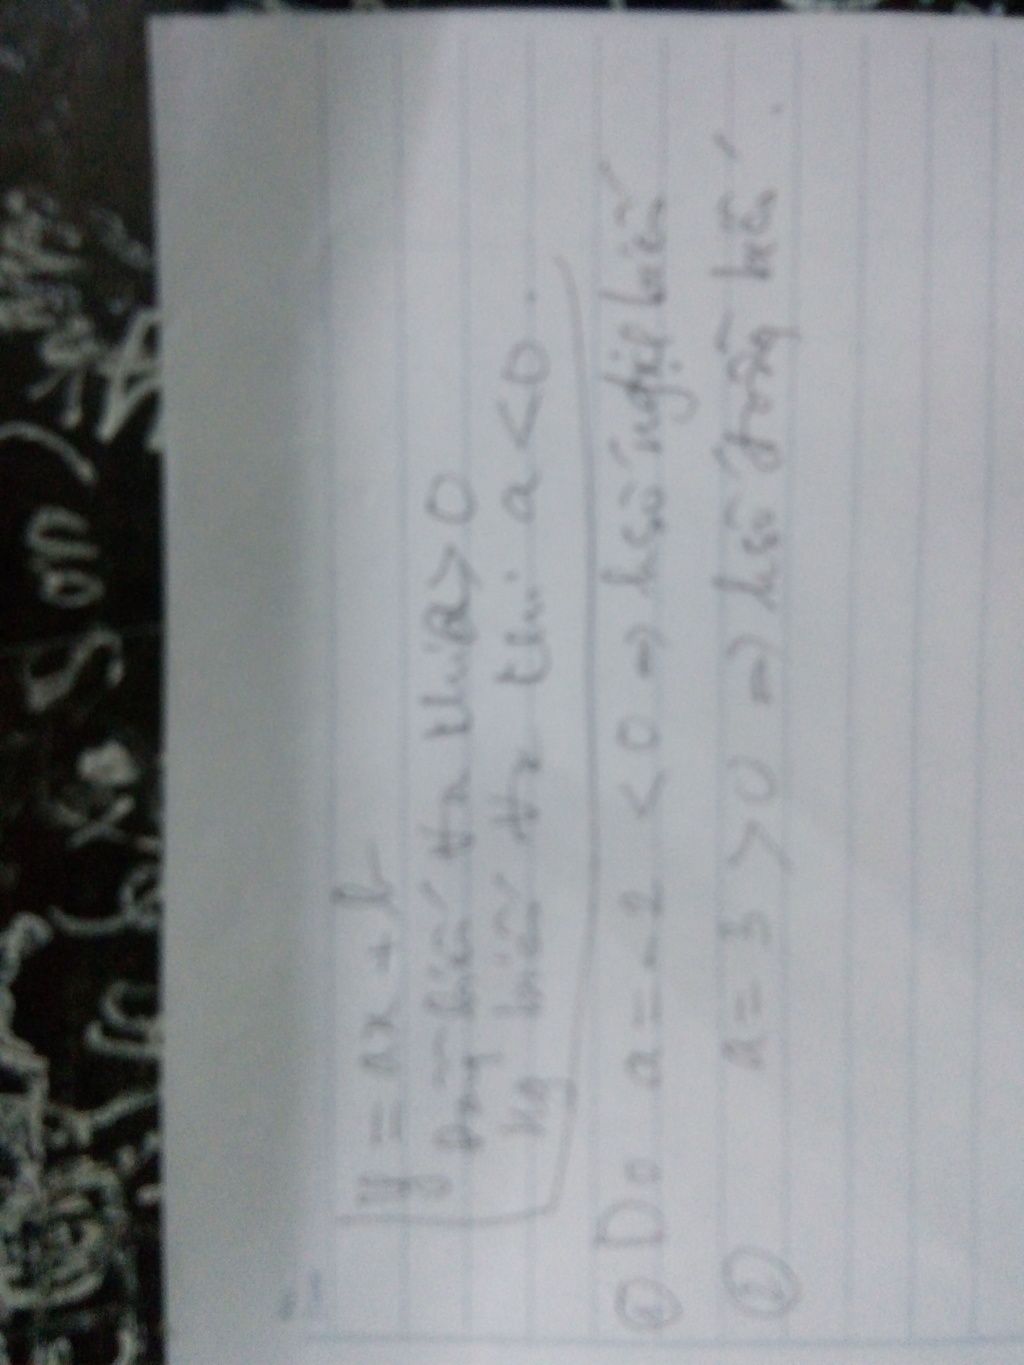 y = ax + b
Đồng biến ∀x thì a > 0
Ng biến ∀x thì a < 0.
a Do a = -2 < 0 => hsố nghịch biến
a = 3 > 0 => hsố đồng biến.